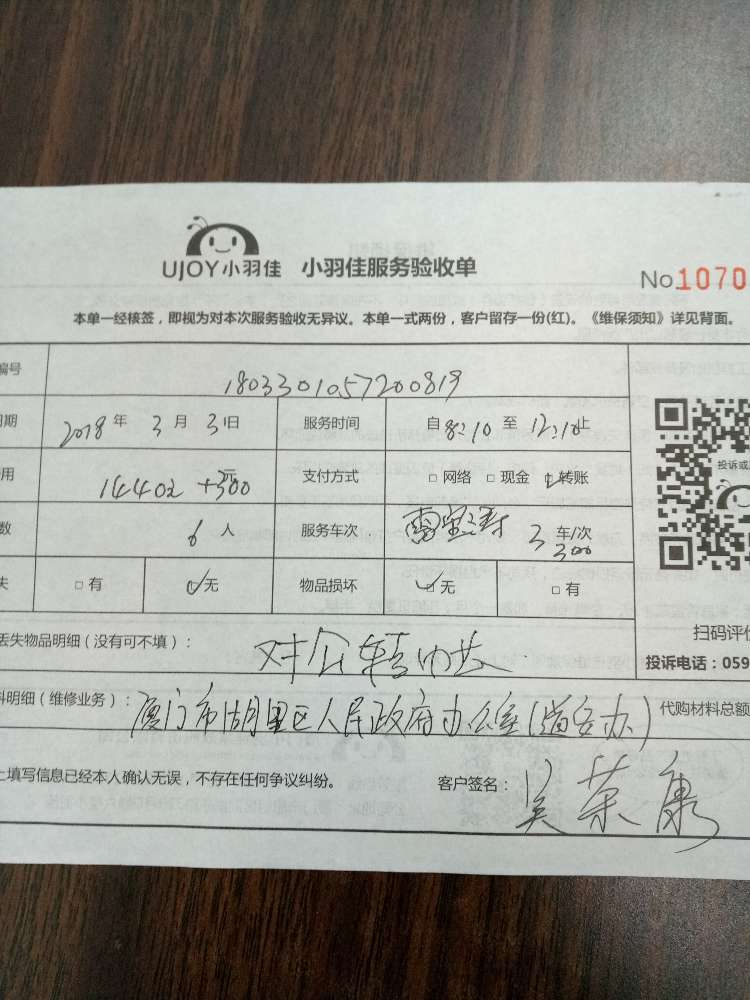 UJOY小羽佳 小羽佳服务验收单
No.1070
本单一经核签，即视为对本次服务验收无异议。本单一式两份，客户留存一份(红)。《维保须知》详见背面。
编号 1803301057200819
日期 2018年3月3日 服务时间 自8:10至12:10止
用 14402+300元 支付方式 □网络 □现金 ☑转账
数 6人 服务车次 3车/次
300
失 □有 ☑无 物品损坏 ☑无 □有
投诉或
扫码评价
丢失物品明细（没有可不填）： 对公转
投诉电话：059
料明细（维修业务）： 厦门市湖里区人民政府办公室() 代购材料总额
上填写信息已经本人确认无误，不存在任何争议纠纷。 客户签名： 吴荣康